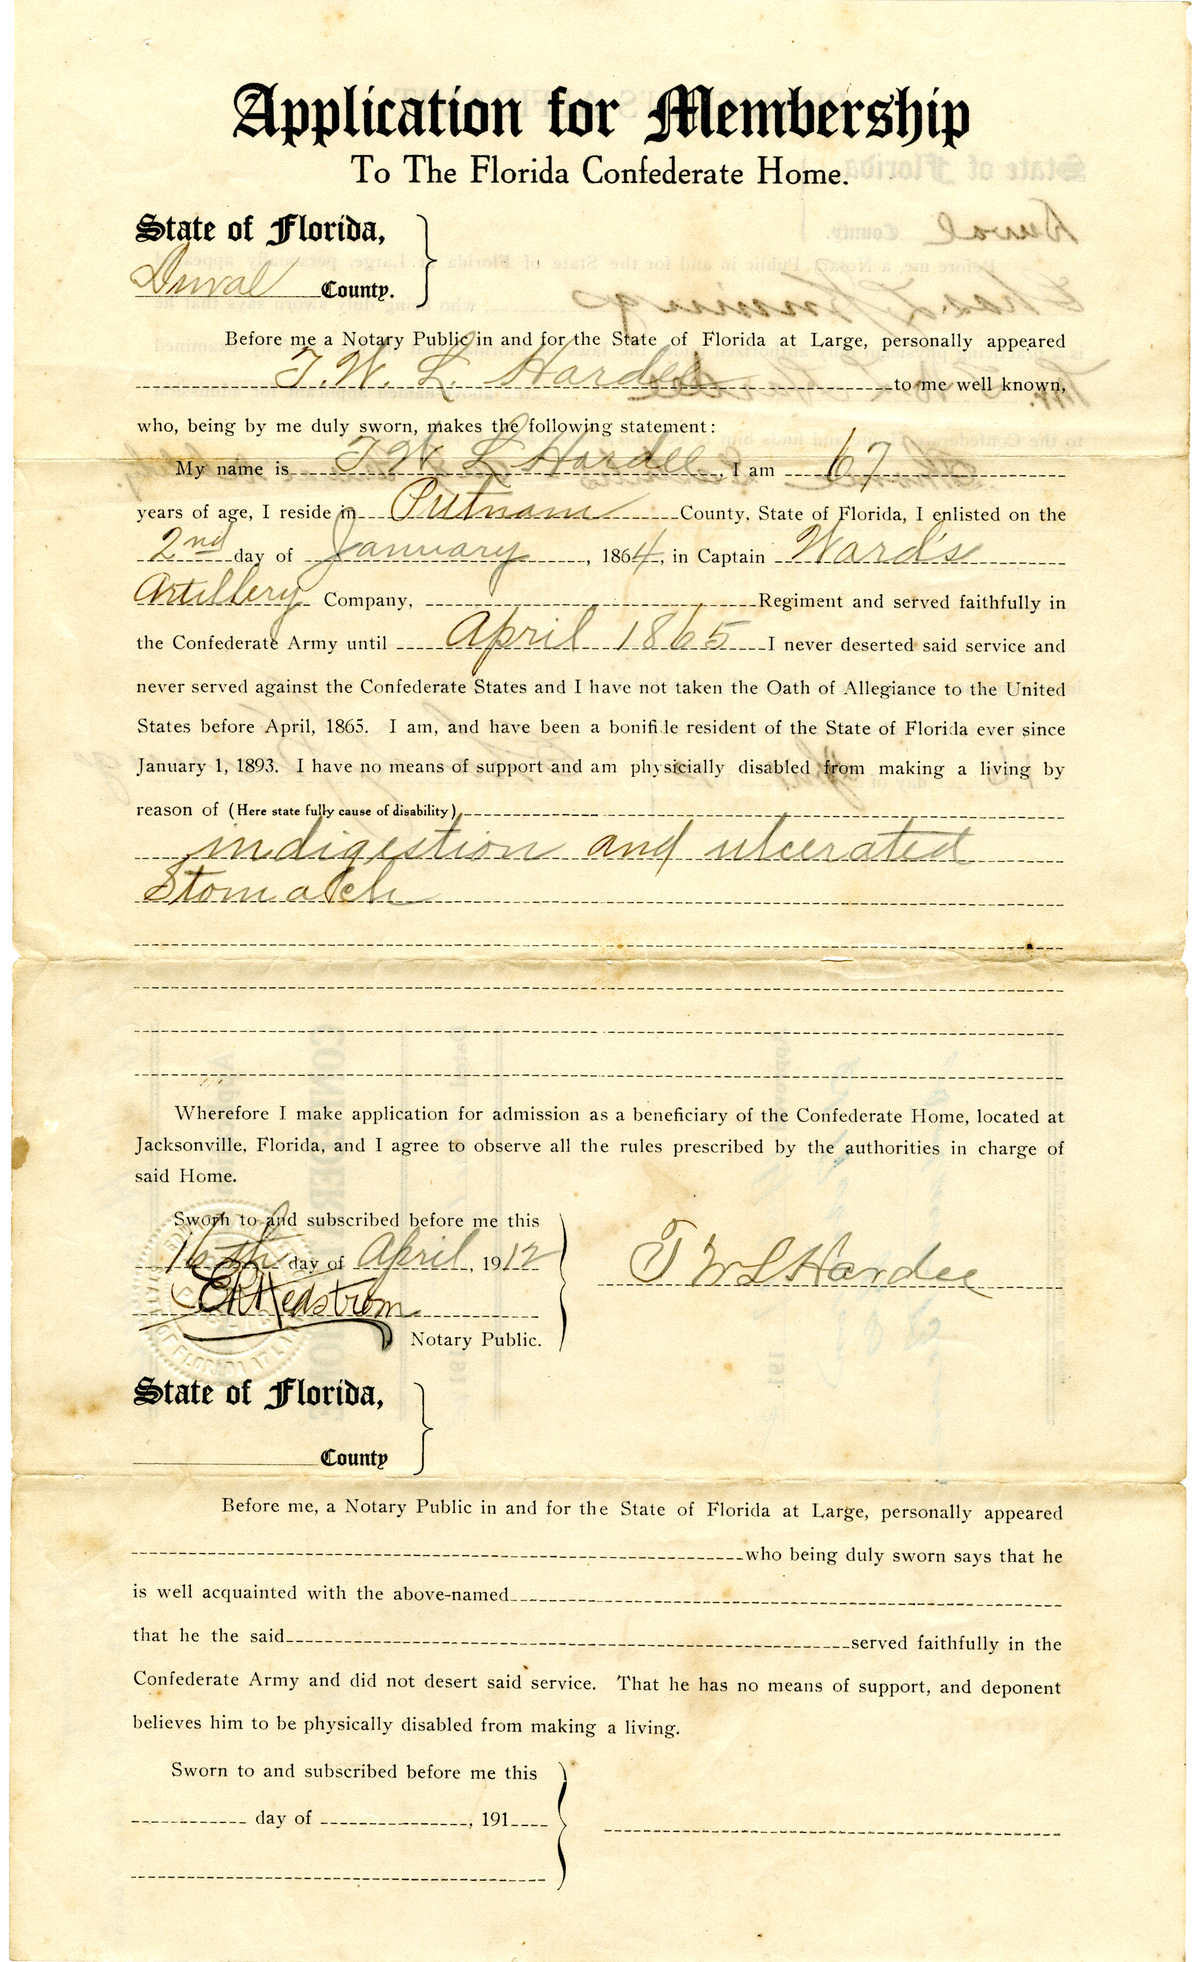 Application for Membership
To The Florida Confederate Home.
State of Florida,
Duval County.
Before me a Notary Public in and for the State of Florida at Large, personally appeared
T. W. L. Hardee to me well known,
who, being by me duly sworn, makes the following statement:
My name is T W L Hardee, I am 67
years of age, I reside in Putnam County, State of Florida, I enlisted on the
2nd day of January, 1864, in Captain Ward's
Artillery Company, Regiment and served faithfully in
the Confederate Army until April 1865 I never deserted said service and
never served against the Confederate States and I have not taken the Oath of Allegiance to the United
States before April, 1865. I am, and have been a bonifide resident of the State of Florida ever since
January 1, 1893. I have no means of support and am physicially disabled from making a living by
reason of (Here state fully cause of disability)
indigestion and ulcerated
Stomatch
Wherefore I make application for admission as a beneficiary of the Confederate Home, located at
Jacksonville, Florida, and I agree to observe all the rules prescribed by the authorities in charge of
said Home.
Sworn to and subscribed before me this
16th day of April, 1912
T W L Hardee
Notary Public.
State of Florida,
County
Before me, a Notary Public in and for the State of Florida at Large, personally appeared
who being duly sworn says that he
is well acquainted with the above-named
that he the said served faithfully in the
Confederate Army and did not desert said service. That he has no means of support, and deponent
believes him to be physically disabled from making a living.
Sworn to and subscribed before me this
day of , 191